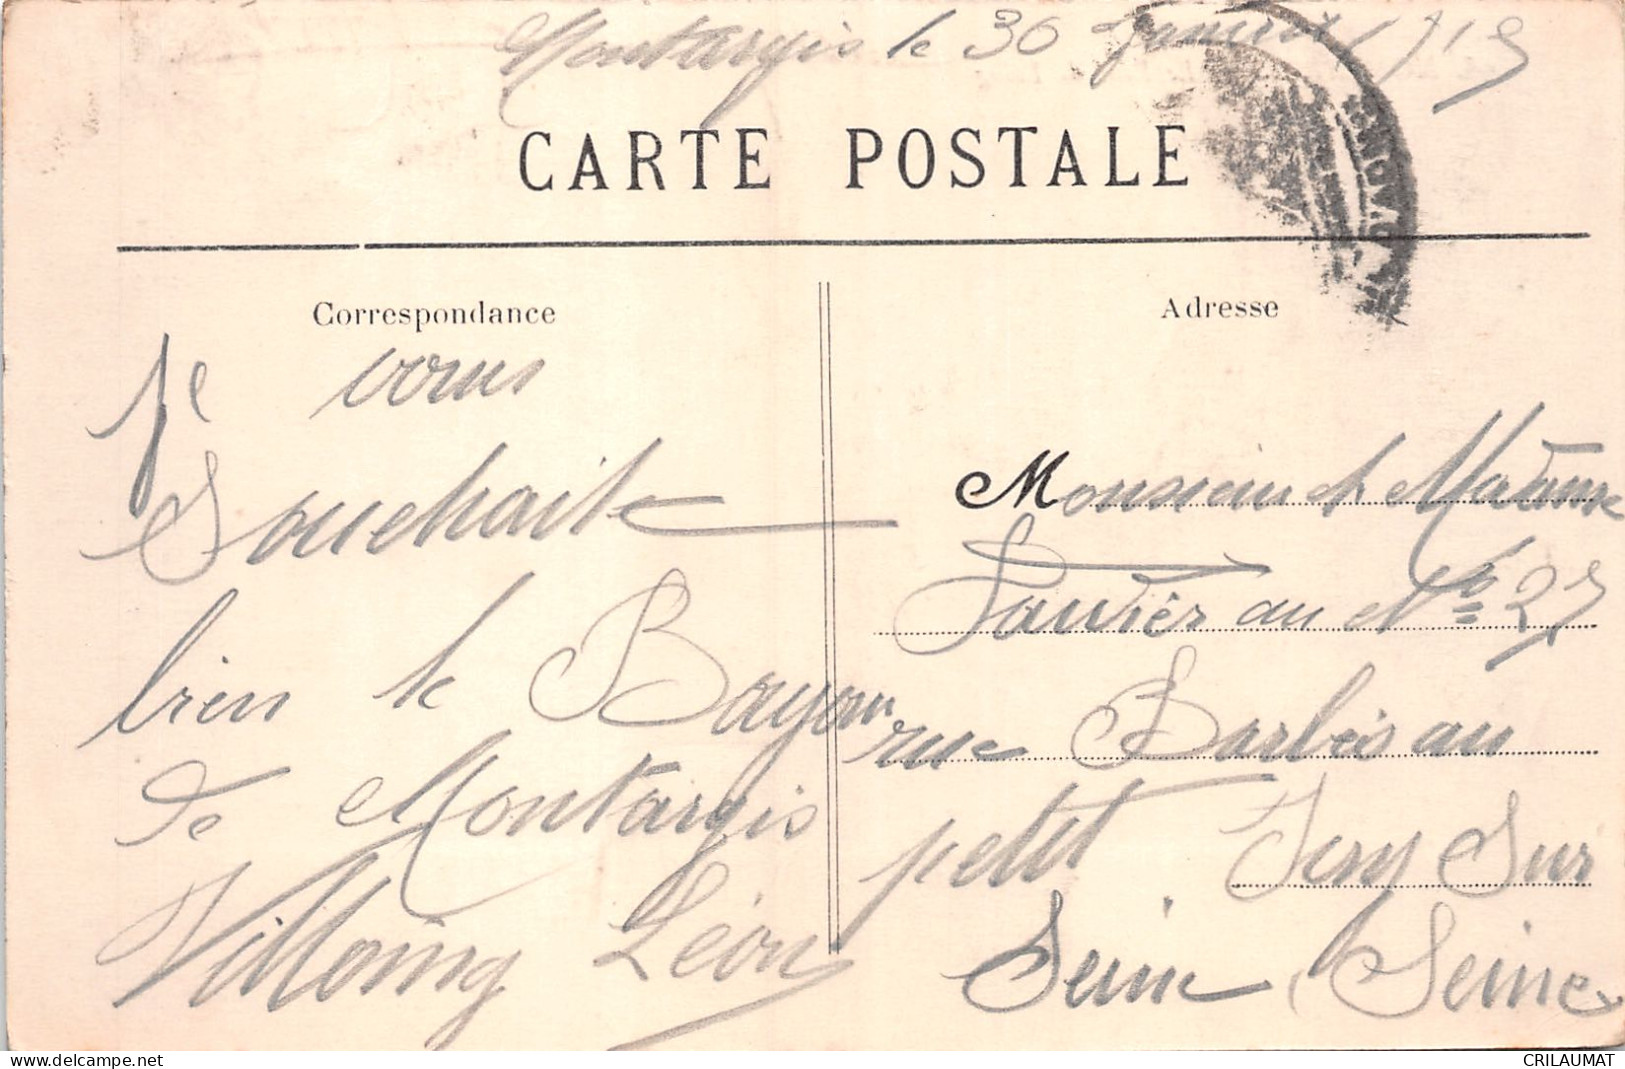 Montargis le 30 Janvier 1915
CARTE POSTALE
Correspondance
Je vous
Souhaite
bien le Bonjour
de Montargis
Léon
Adresse
Monsieur et Madame
au No 25
rue Barbès au
petit Ivry Sur
Seine Seine
delcampe.net
CRILAUMAT